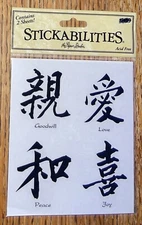 Contains
2 Sheets!
STICKABILITIES
Acid Free
親 愛
Goodwill Love
和 喜
Peace Joy